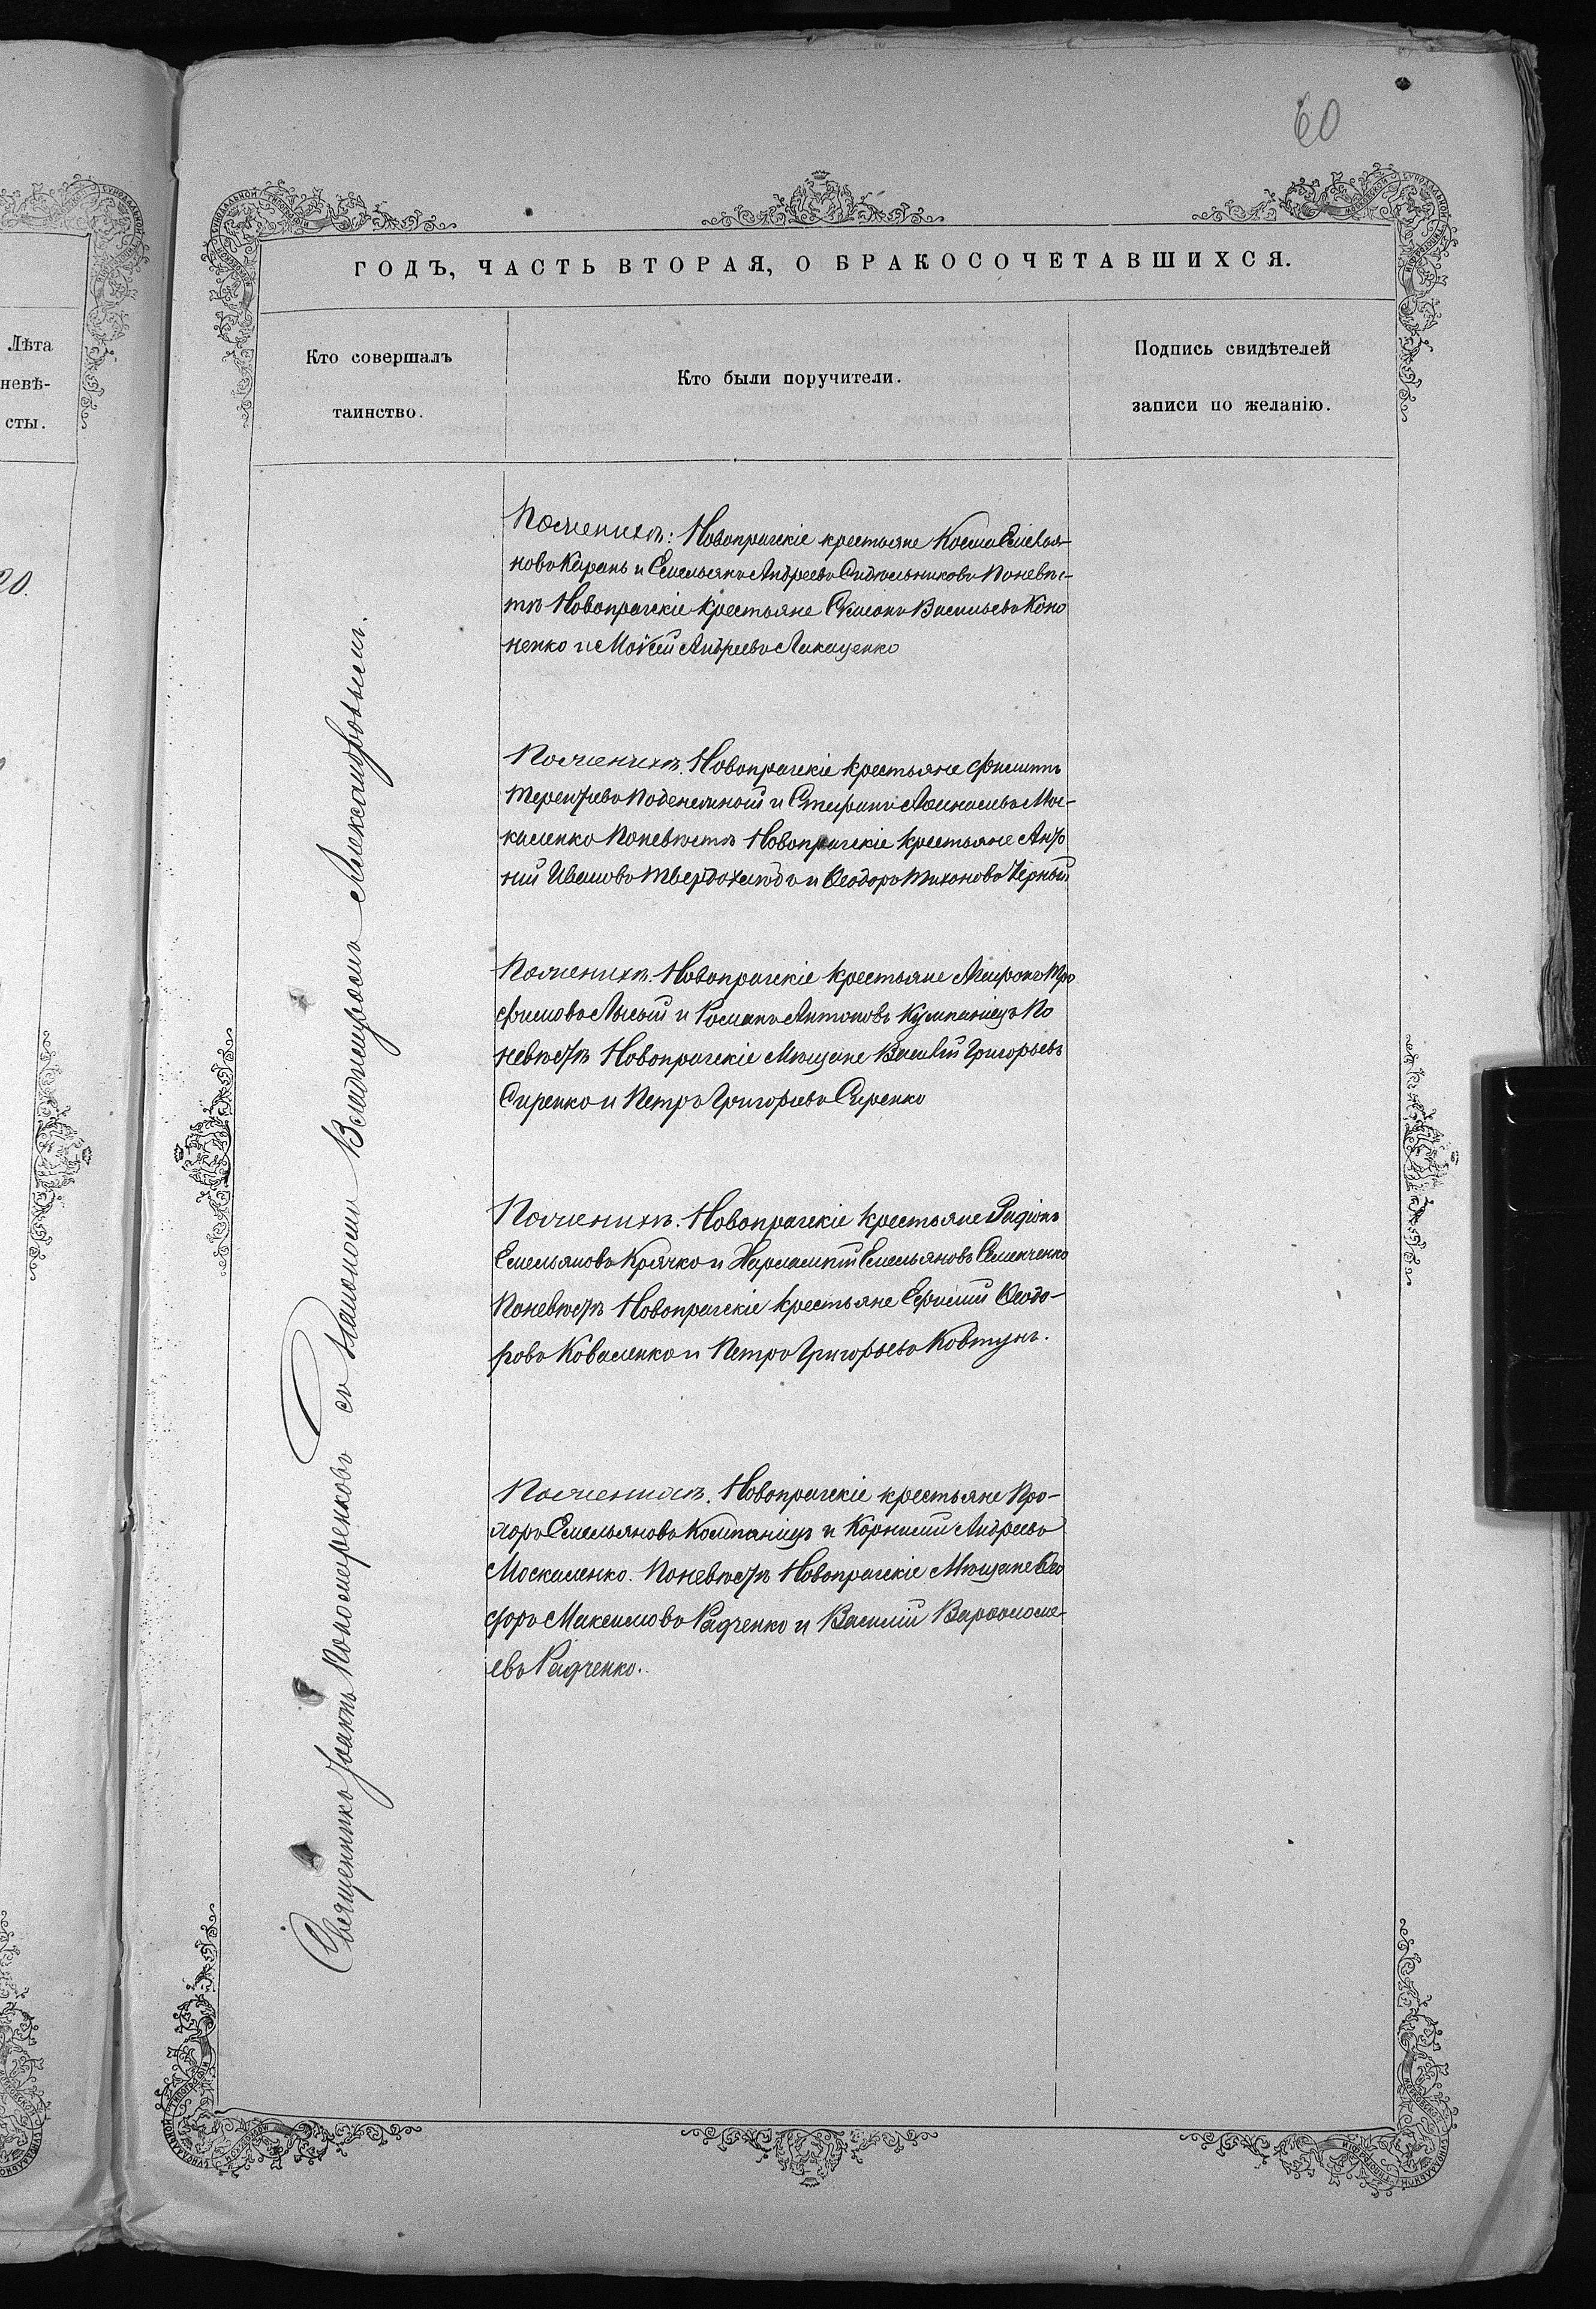 60
ГОДЪ, ЧАСТЬ ВТОРАЯ, О БРАКОСОЧЕТАВШИХСЯ.
Лѣта
невѣ-
сты.
20.
Кто совершалъ
таинство.
Кто были поручители.
Подпись свидѣтелей
записи по желанію.
Священникъ Іоаннъ Пономаренковъ съ Діакономъ Владиміромъ Александровымъ.
Поженихѣ: Новопрагскіе крестьяне Косма Емелья-
новъ Карань и Емельянъ Андреевъ Сидельниковъ Поневѣс-
тѣ Новопрагскіе крестьяне Симонъ Васильевъ Коно
ненко и Моѵсей Андреевъ Лукащенко
Поженихѣ. Новопрагскіе крестьяне Филиппъ
Терентьевъ и Стефанъ Аѳанасьевъ Мос-
каленко Поневѣстѣ Новопрагскіе крестьяне Анто
ній Ивановъ Твердохлѣбъ и Ѳеодоръ Тихоновъ Черный
Поженихѣ. Новопрагскіе крестьяне Тро
фимовъ Лысый и Романъ Антоновъ Кумпаніецъ По
невѣстѣ Новопрагскіе Мѣщане Василій Григорьевъ
Сиренко и Петръ Григорьевъ Сиренко
Поженихѣ. Новопрагскіе крестьяне Родіонъ
Емельяновъ Крячко и Харлампій Емельяновъ Семенченко
Поневѣстѣ Новопрагскіе крестьяне Ефимій Ѳеодо-
ровъ Коваленко и Петръ Григорьевъ Ковтунъ.
Поженихѣ. Новопрагскіе крестьяне Про-
хоръ Емельяновъ Компаніецъ и Корнилій Андреевъ
Москаленко. Поневѣстѣ Новопрагскіе Мѣщане Ѳео
доръ Максимовъ Радченко и Василій Варѳоломе-
евъ Радченко.